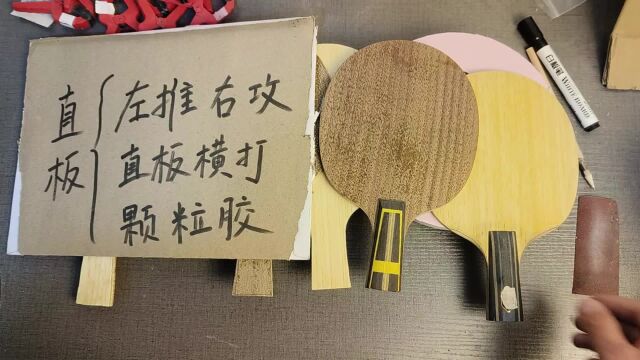 直板
左推右攻
直板横打
颗粒胶
白板笔 WHITEBOARD